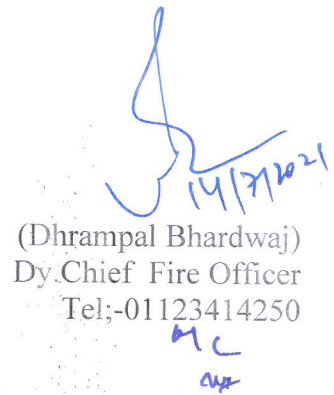 14/7/2021
(Dhrampal Bhardwaj)
Dy.Chief Fire Officer
Tel;-01123414250